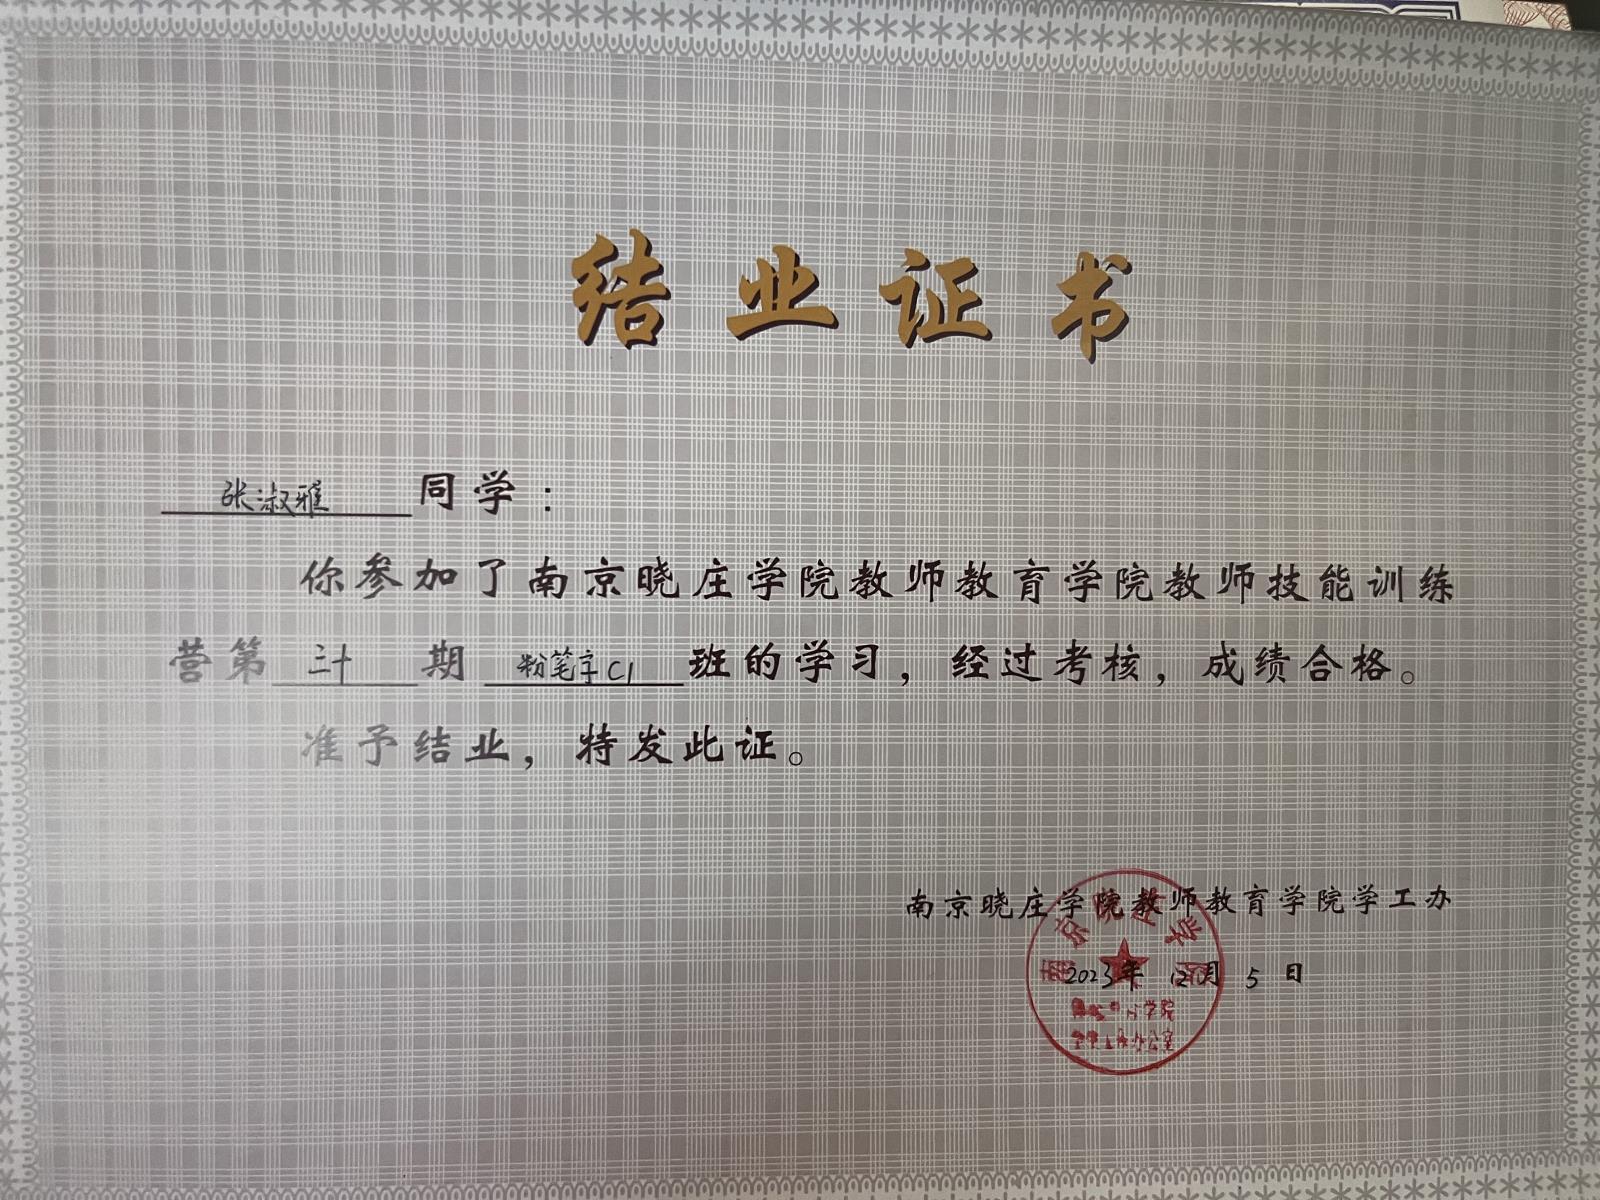 结业证书
张淑雅同学：
你参加了南京晓庄学院教师教育学院教师技能训练
营第三十期粉笔字C1班的学习，经过考核，成绩合格。
准予结业，特发此证。
南京晓庄学院教师教育学院学工办
2023年12月5日